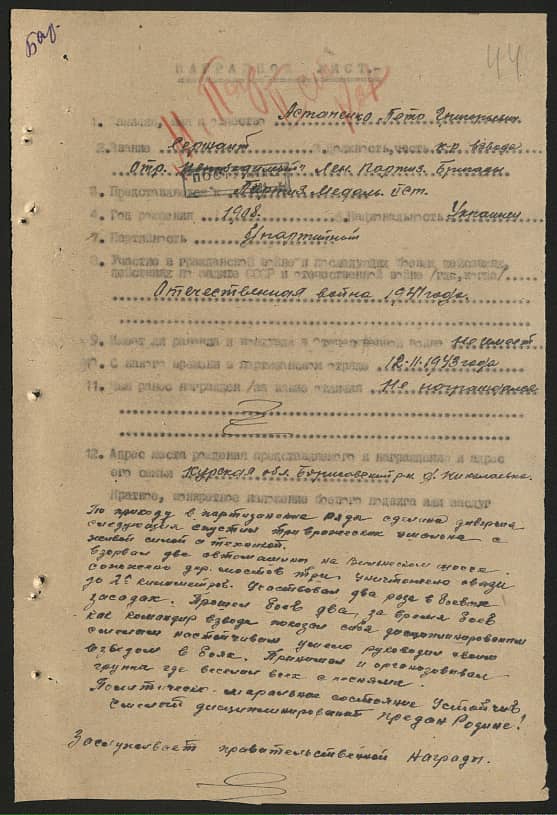 Бар.
44
НАГРАДНОЙ ЛИСТ.-
1. Фамилия, имя и отчество Астаненко Пото Григорьевич
2. Звание Сержант 3. Должность, часть к-р взвода
Отр. "Непобедимый" Лен. Партиз. Бригады
3. Представляется к Партиз медаль II ст.
4. Год рождения 1908. 5. Национальность Украинец
7. Партийность б/партийной
8. Участие в гражданской войне и последующих боевых действиях,
действиях по защите СССР и отечественной войне /где, когда/
Отечественная война 1941 года.
9. Имеет ли ранения и контузии в отечественной войне Не имеет
10. С какого времени в партизанском отряде 12-11-1943 года
11. Чем ранее награжден /за какие отличия Не награждался
12. Адрес места рождения представляемого к награждению и адрес
его семьи Курская обл. Борисовский р-н д. Николаевка.
Краткое, конкретное изложение боевого подвига или заслуг
По приходу в партизанские ряды сделана диверсия
следующая спустил три вражеских эшалона с
живой силой и техникой.
Взорвал две автомашины на Виленском шоссе.
сожжено дер. мостов три, уничтожено связи
до 2х километров. Участвовал два раза в боевых
засадах. Прошел боев два, за время боев
как командир взвода показал себя дисциплинированным
смелым настойчивым умело руководил своим
взводом в боях. Принимал и организовывал
группа где веселил всех с песнями.
Политически-маральное состояние Устойчив
смелый дисциплинированный предан Родине!
Заслуживает правительственной Награды.